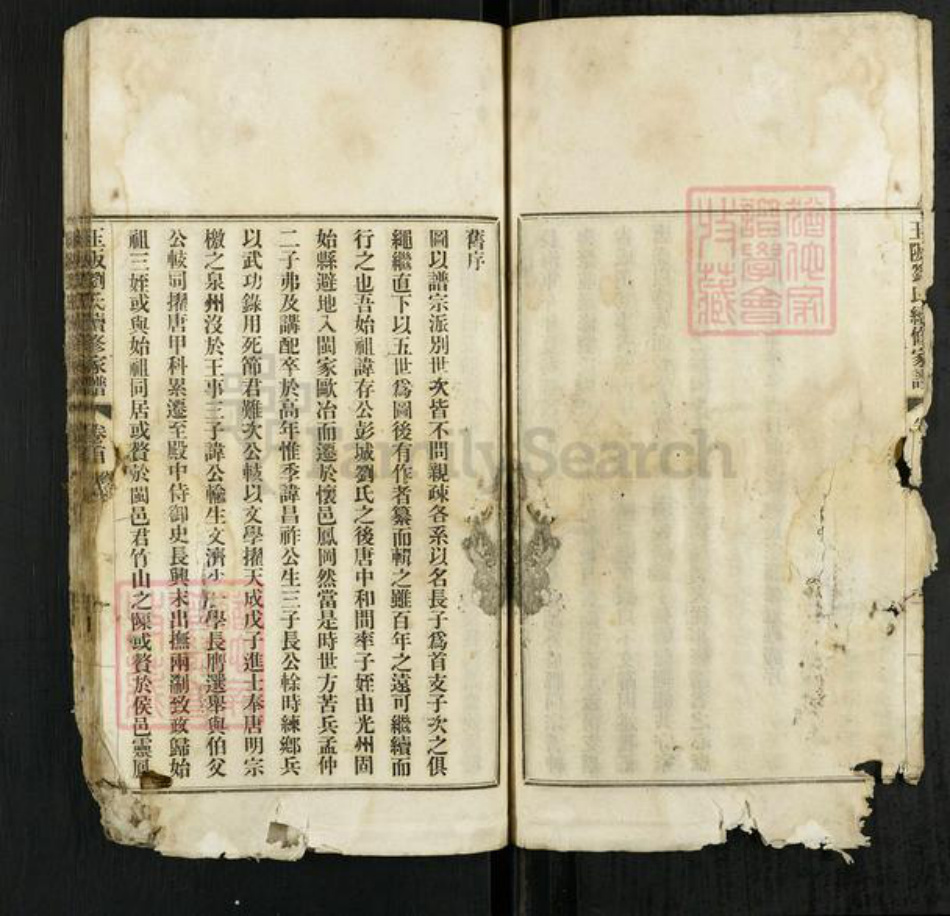 玉阪劉氏續修家譜
舊序
圖以譜宗派別世次皆不問親疎各系以名長子爲首支子次之俱
繩繼直下以五世爲圖後有作者纂而輯之雖百年之遠可繼續而
行之也吾始祖諱存公彭城劉氏之後唐中和間率子姪由光州固
始縣避地入閩家歐冶而遷於懷邑鳳岡然當是時世方苦兵孟仲
二子弗及講配卒於高年惟季諱昌祚公生三子長公幹時練鄉兵
以武功錄用死節君難次公軾以文學擢天成戊子進士奉唐明宗
檄之泉州沒於王事三子諱公輸生文濟少學長膺選舉與伯父
公軾同擢唐甲科累遷至殿中侍御史長興末出撫兩淛致政歸始
祖三姪或與始祖同居或贅於閩邑君竹山之陳或贅於侯邑靈鳳
玉阪劉氏續修家譜 卷首
譜學會
特藏
FamilySearch